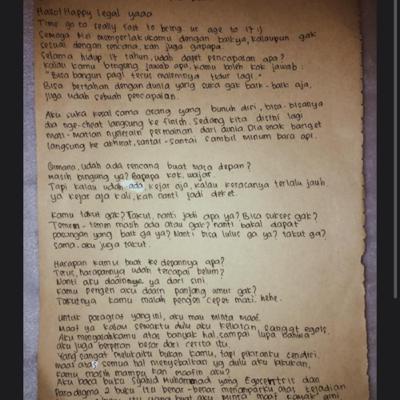 Halo! Happy legal yaaa
Time go to really fast to bring ur age to 17 :)
Semoga 17 memperlakukanmu dengan baik ya, kalaupun gak
sesuai dengan rencana, kan juga gapapa.
Selama hidup 17 tahun, udah dapet pencapaian apa?
kalau kamu bingung jawab apa, kamu boleh kok jawab:
"Bisa bangun pagi terus malemnya tidur lagi."
Bisa bertahan dengan dunia yang suka gak baik-baik aja,
juga udah sebuah pencapaian.
Aku suka kesal sama orang yang bunuh diri, bisa-bisanya
dia nge-cheat langsung ke finish. Sedang kita disini lagi
mati-matian nyelesain permainan dari dunia. Dia enak banget
langsung ke akhirat, santai-santai sambil minum bara api.
Gimana, udah ada rencana buat masa depan?
Masih bingung ya? Gapapa kok, wajar.
Tapi kalau udah ada, kejar aja, kalau kerasanya terlalu jauh
ya kejar aja kali, kan nanti jadi deket.
Kamu takut gak? Takut, nanti jadi apa ya? Bisa sukses gak?
Temen-temen masih ada atau gak? nanti bakal dapat
pasangan yang baik ga ya? Nanti bisa lulus ga ya? takut ga?
sama. aku juga takut.
Harapan kamu buat ke depannya apa?
Terus, harapannya udah tercapai belum?
Nanti aku doainnya ya dari sini
Kamu pengen aku doain panjang umur gak?
Takutnya kamu malah pengen cepet mati. hehe.
Untuk paragraf yang ini, aku mau minta maaf.
Maaf ya kalau sewaktu dulu aku kelihatan sangat egois.
Aku mengenalkamu atas banyak hal, sampai lupa bahwa
aku juga berperan besar dari cerita itu.
Yang sangat melukaiku bukan kamu, tapi pikiranku sendiri.
maaf atas semua hal menyebalkan yg dulu aku lakukan,
kamu masih mampu kan maafin aku?
Aku baca buku Syahid Muhammad yang Egosentris dan
Paradigma 2 buku itu benar-benar
yang buat aku minta maaf kayak gini